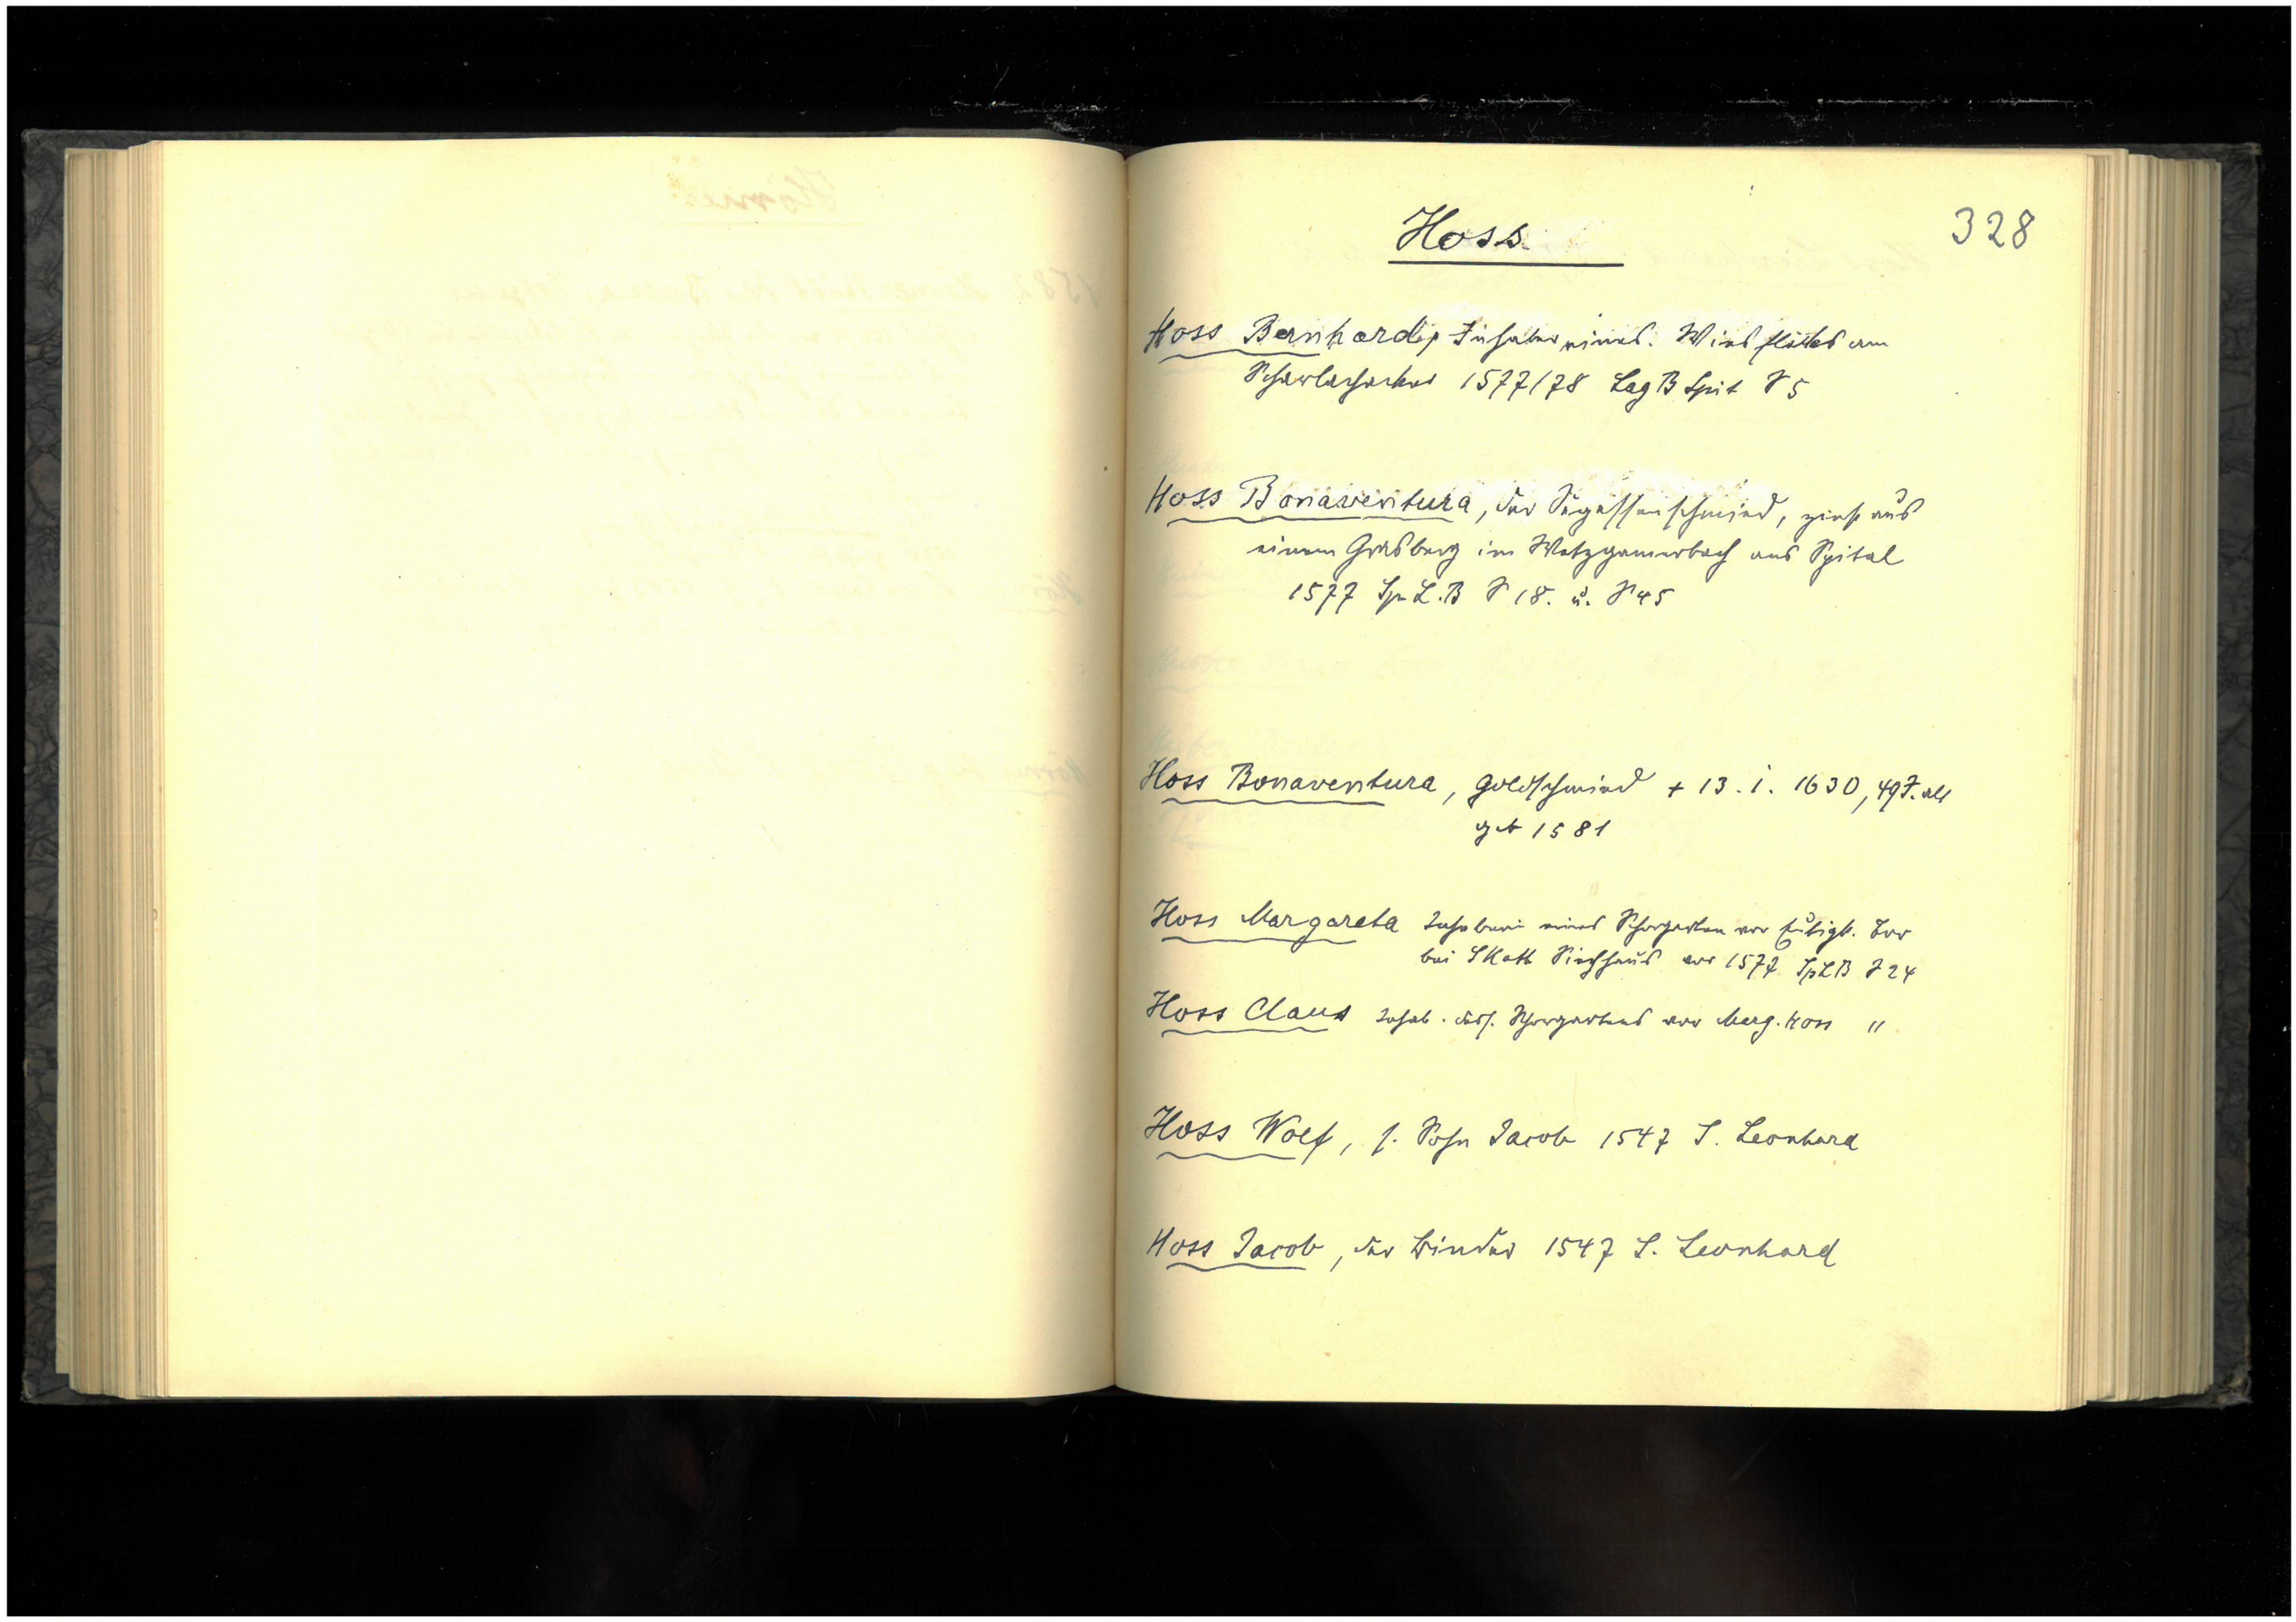 Hoss
328
Hoss Bernhard, Inhaber eines Wiesflecks am
Scharlachacker 1577/78 Lag B Spit S 5
Hoss Bonaventura, der Segessenschmied, zinst aus
einem Grasberg im Wetzgamerbach ans Spital
1577 Sp L.B S 18. u. S 45
Hoss Bonaventura, Goldschmied + 13. 1. 1630, 49 J. alt
geb 1581
Hoss Margareta Inhaberin eines Schorgarten vor Tor
bei S Kath Siechhaus vor 1577 SpLB S 24
Hoss Claus Inhab. dess. Schorgartens vor Marg. Hoss "
Hoss Wolf, s. Sohn Jacob 1547 S. Leonhard
Hoss Jacob, der Binder 1547 S. Leonhard